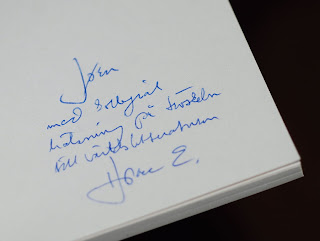 Jören
med kollegial
hälsning på tröskeln
till världslitteraturen
Hörne E.